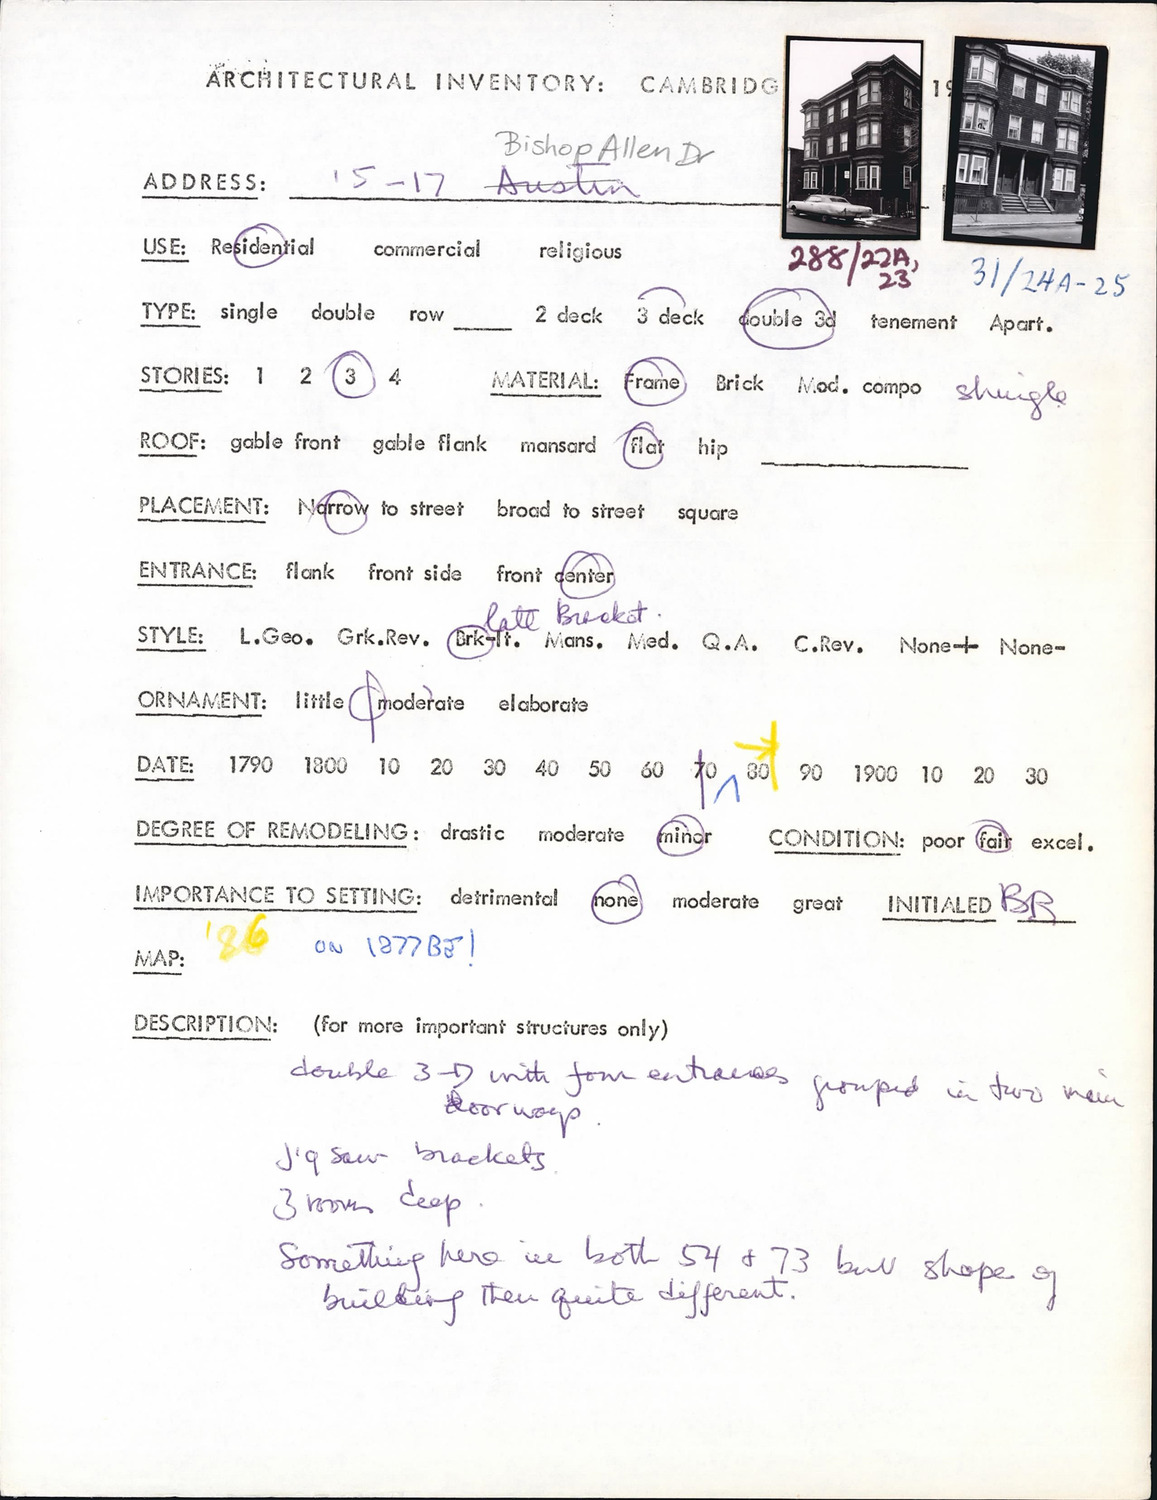 ARCHITECTURAL INVENTORY: CAMBRIDG 19
Bishop Allen Dr
ADDRESS: 15-17 Austin
USE: Residential commercial religious
288/22A, 23
31/24A-25
TYPE: single double row ____ 2 deck 3 deck double 3d tenement Apart.
STORIES: 1 2 3 4 MATERIAL: Frame Brick Mod. compo shingle
ROOF: gable front gable flank mansard flat hip ____
PLACEMENT: Narrow to street broad to street square
ENTRANCE: flank front side front center
late Bracket.
STYLE: L.Geo. Grk.Rev. Brk-It. Mans. Med. Q.A. C.Rev. None+ None-
ORNAMENT: little moderate elaborate
DATE: 1790 1800 10 20 30 40 50 60 70 80 90 1900 10 20 30
DEGREE OF REMODELING: drastic moderate minor CONDITION: poor fair excel.
IMPORTANCE TO SETTING: detrimental none moderate great INITIALED BR
'86 ON 1877 BE!
MAP:
DESCRIPTION: (for more important structures only)
double 3-D with four entrances grouped in two main
Doorways.
Jig saw brackets
3 rooms deep.
Something here in both 54 & 73 but shape of
building then quite different.